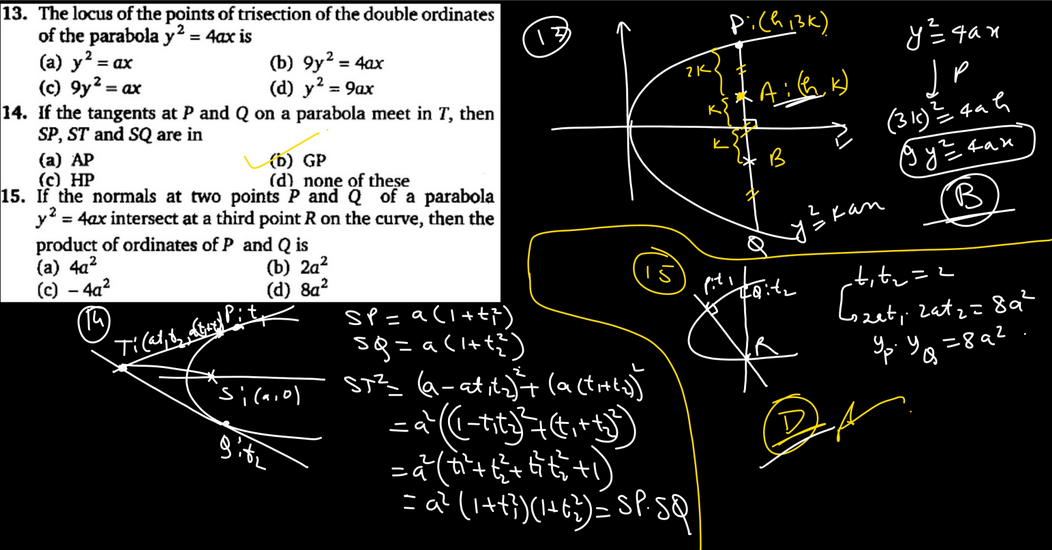 13. The locus of the points of trisection of the double ordinates
of the parabola y² = 4ax is
(a) y² = ax (b) 9y² = 4ax
(c) 9y² = ax (d) y² = 9ax
14. If the tangents at P and Q on a parabola meet in T, then
SP, ST and SQ are in
(a) AP (b) GP
(c) HP (d) none of these
15. If the normals at two points P and Q of a parabola
y² = 4ax intersect at a third point R on the curve, then the
product of ordinates of P and Q is
(a) 4a² (b) 2a²
(c) – 4a² (d) 8a²
13
P:(h,3k)
2k
A:(h,k)
k
k
B
Q
y²=4ax
y²=4ax
↓P
(3k)²=4ah
9y²=4ax
B
14
T:(at₁t₂,a(t₁+t₂))
P:t₁
S:(a,0)
Q:t₂
SP=a(1+t₁²)
SQ=a(1+t₂²)
ST²=(a-at₁t₂)²+(a(t₁+t₂))²
=a²((1-t₁t₂)²+(t₁+t₂)²)
=a²(t₁²+t₂²+t₁²t₂²+1)
=a²(1+t₁²)(1+t₂²)=SP.SQ
15
P:t₁
Q:t₂
R
t₁t₂=2
2at₁.2at₂=8a²
y_P.y_Q=8a²
D